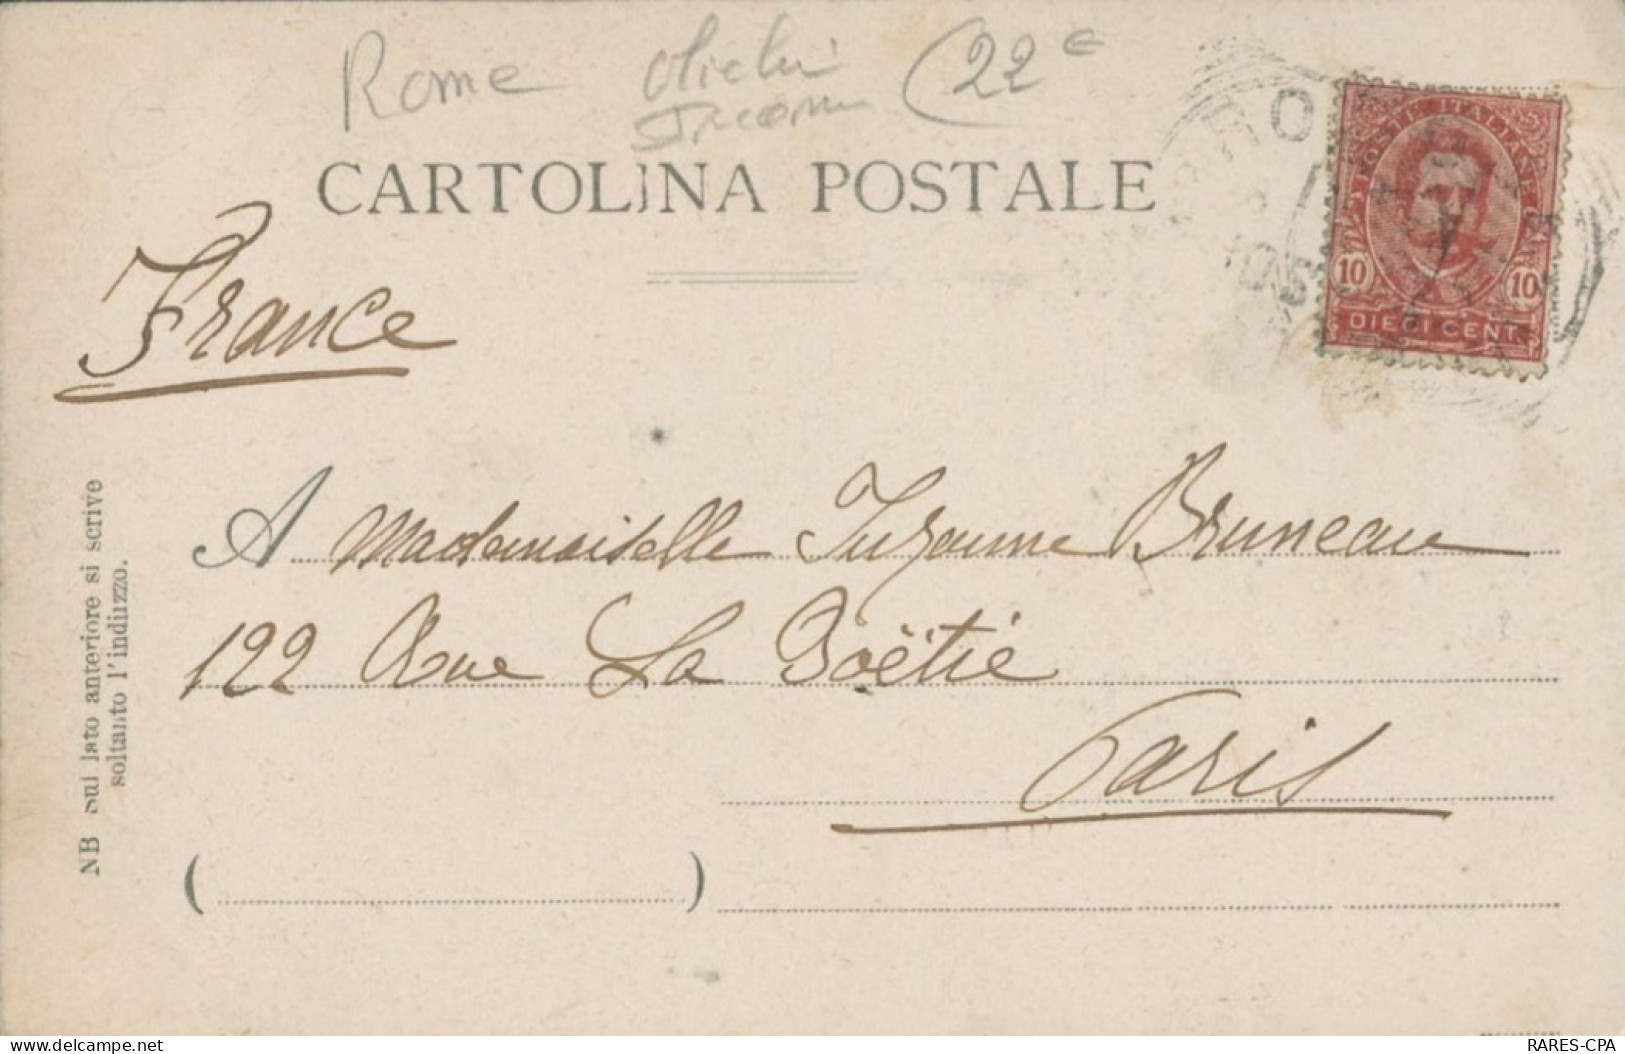 Rome (22 e
CARTOLINA POSTALE
POSTE ITALIANE
10 10
DIECI CENT.
France
A Mademoiselle Suzanne Bruneau
122 Rue La Boëtie
Paris
NB Sul lato anteriore si scrive
soltanto l'indirizzo.
( )
RARES-CPA
delcampe.net